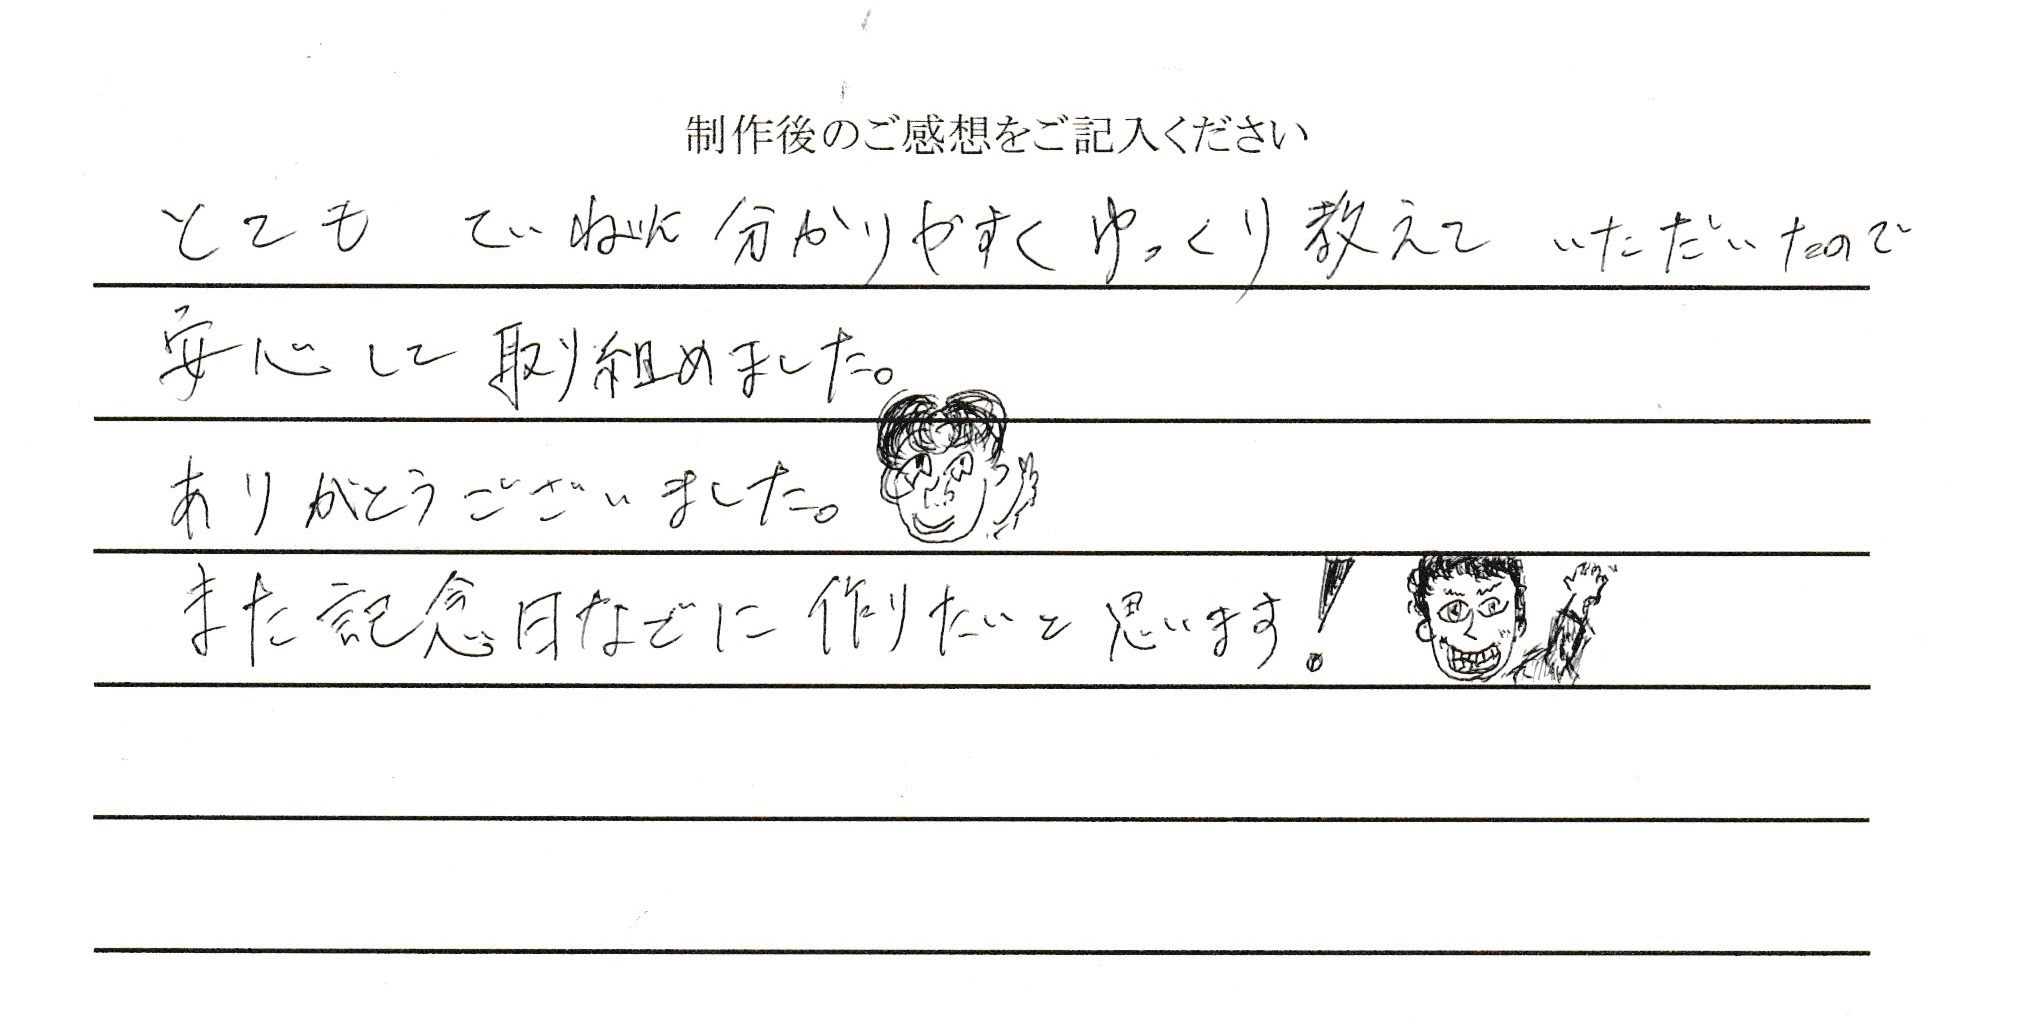 制作後のご感想をご記入ください
とても ていねいに 分かりやすく ゆっくり 教えて いただいたので
安心して 取り組めました。
ありがとうございました。
また記念日などに 作りたいと 思います!